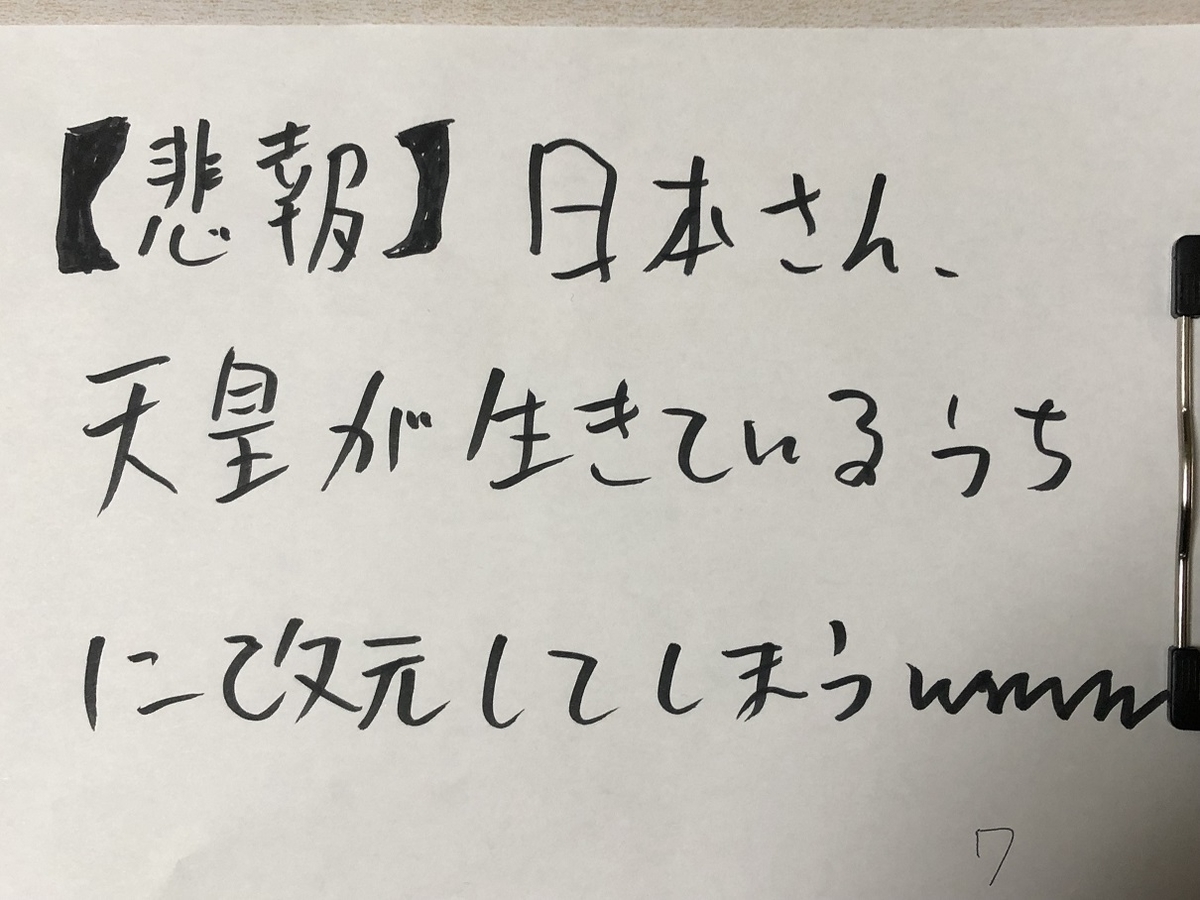 【悲報】日本さん、
天皇が生きているうち
に改元してしまうwwww
7